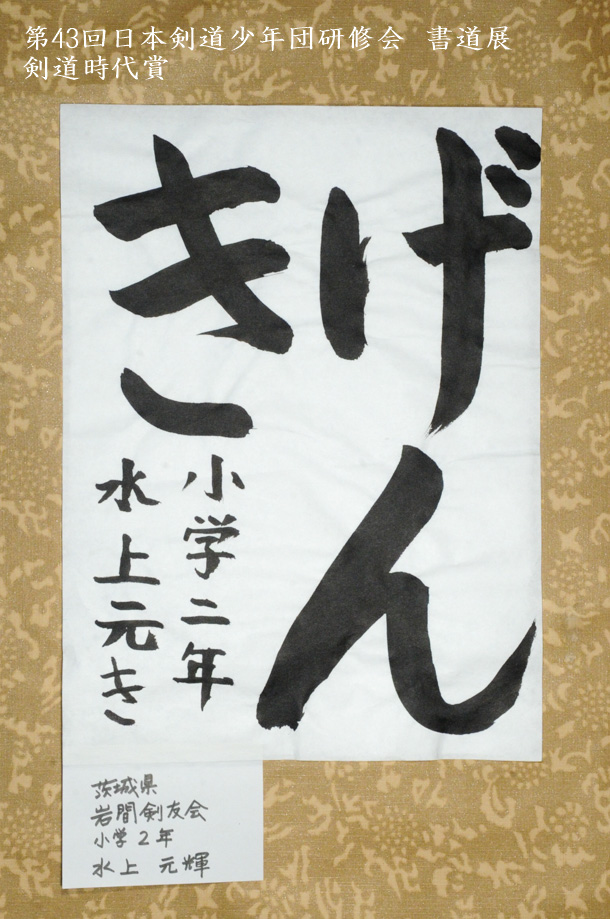 第43回日本剣道少年団研修会 書道展
剣道時代賞
げん
き
小学二年
水上元き
茨城県
岩間剣友会
小学2年
水上 元輝